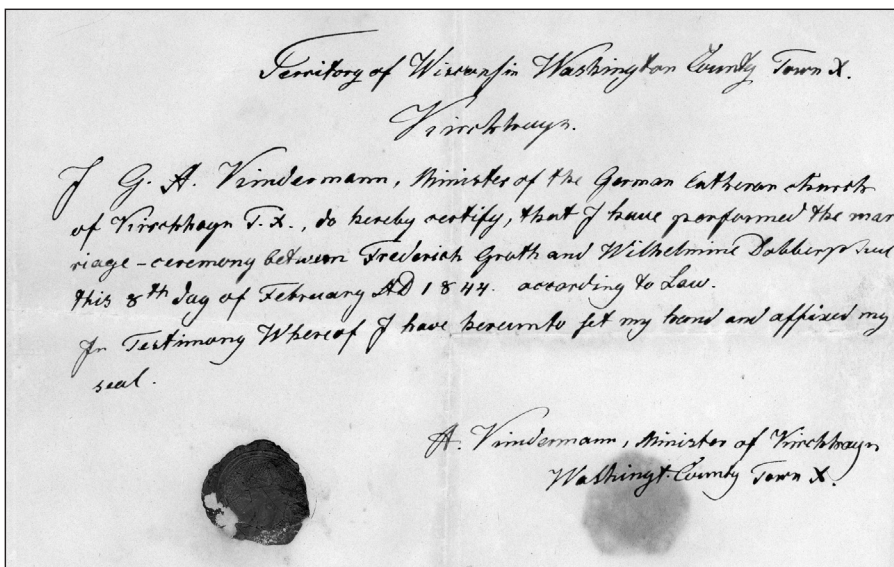 Territory of Wisconsin Washington County Town X.
Kirchhayn.
I G. A. Kindermann, Minister of the German Lutheran church
of Kirchhayn T. X., do hereby certify, that I have performed the mar
riage-ceremony between Frederich Groth and Wilhelmine Dobberphul
this 8th day of February AD 1844. according to Law.
In Testimony Whereof I have hereunto set my hand and affixed my
seal.
A. Kindermann, Minister of Kirchhayn
Washingt. County Town X.